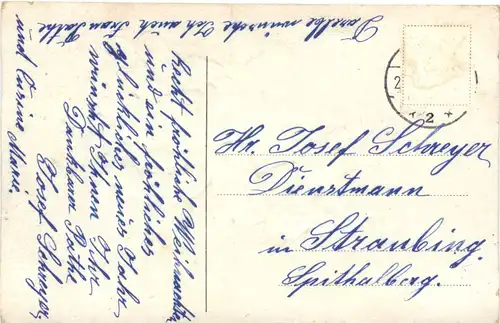 Recht fröhliche Weihnachten
und ein fröhliches
glückliches neues Jahr
wünscht Ihnen Ihr
dankbarer Pathe
Josef Schreyer
und Cusine Marie.
Dasselbe wünsche Ich auch Frau Pathe
2
2
Hr. Josef Schreyer
Dienstmann
in Straubing
Spithalberg.